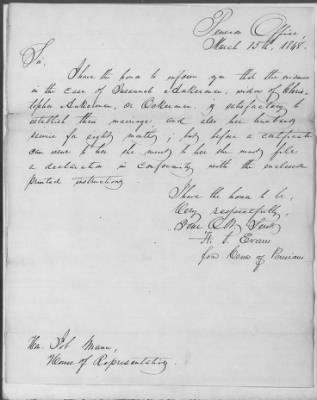 Pension Office,
March 15th, 1848.
Sir,
I have the honor to inform you that the evidence
in the case of Susannah Ankerman, widow of Chris-
topher Ankerman, or Ockerman, is satisfactory to
establish their marriage, and also her husband's
service for eight months; but before a certificate
can issue to her she must file
a declaration in conformity with the enclosed
printed instructions.
I have the honor to be,
Very respectfully,
Your Obt Servt
Evans
for Com of Pensions
Hon. Job Mann,
House of Representatives.